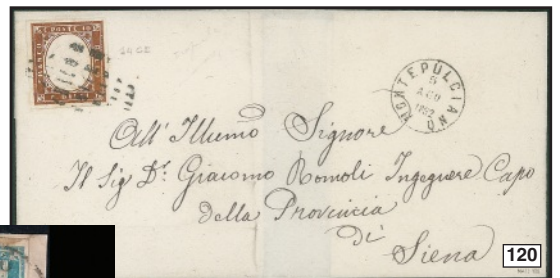 FRANCO
POSTE
MONTEPULCIANO
AGO
All' Illumo Signore
Il Sig Dr. Giacomo Romoli Ingegnere Capo
della Provincia
di
Siena
120